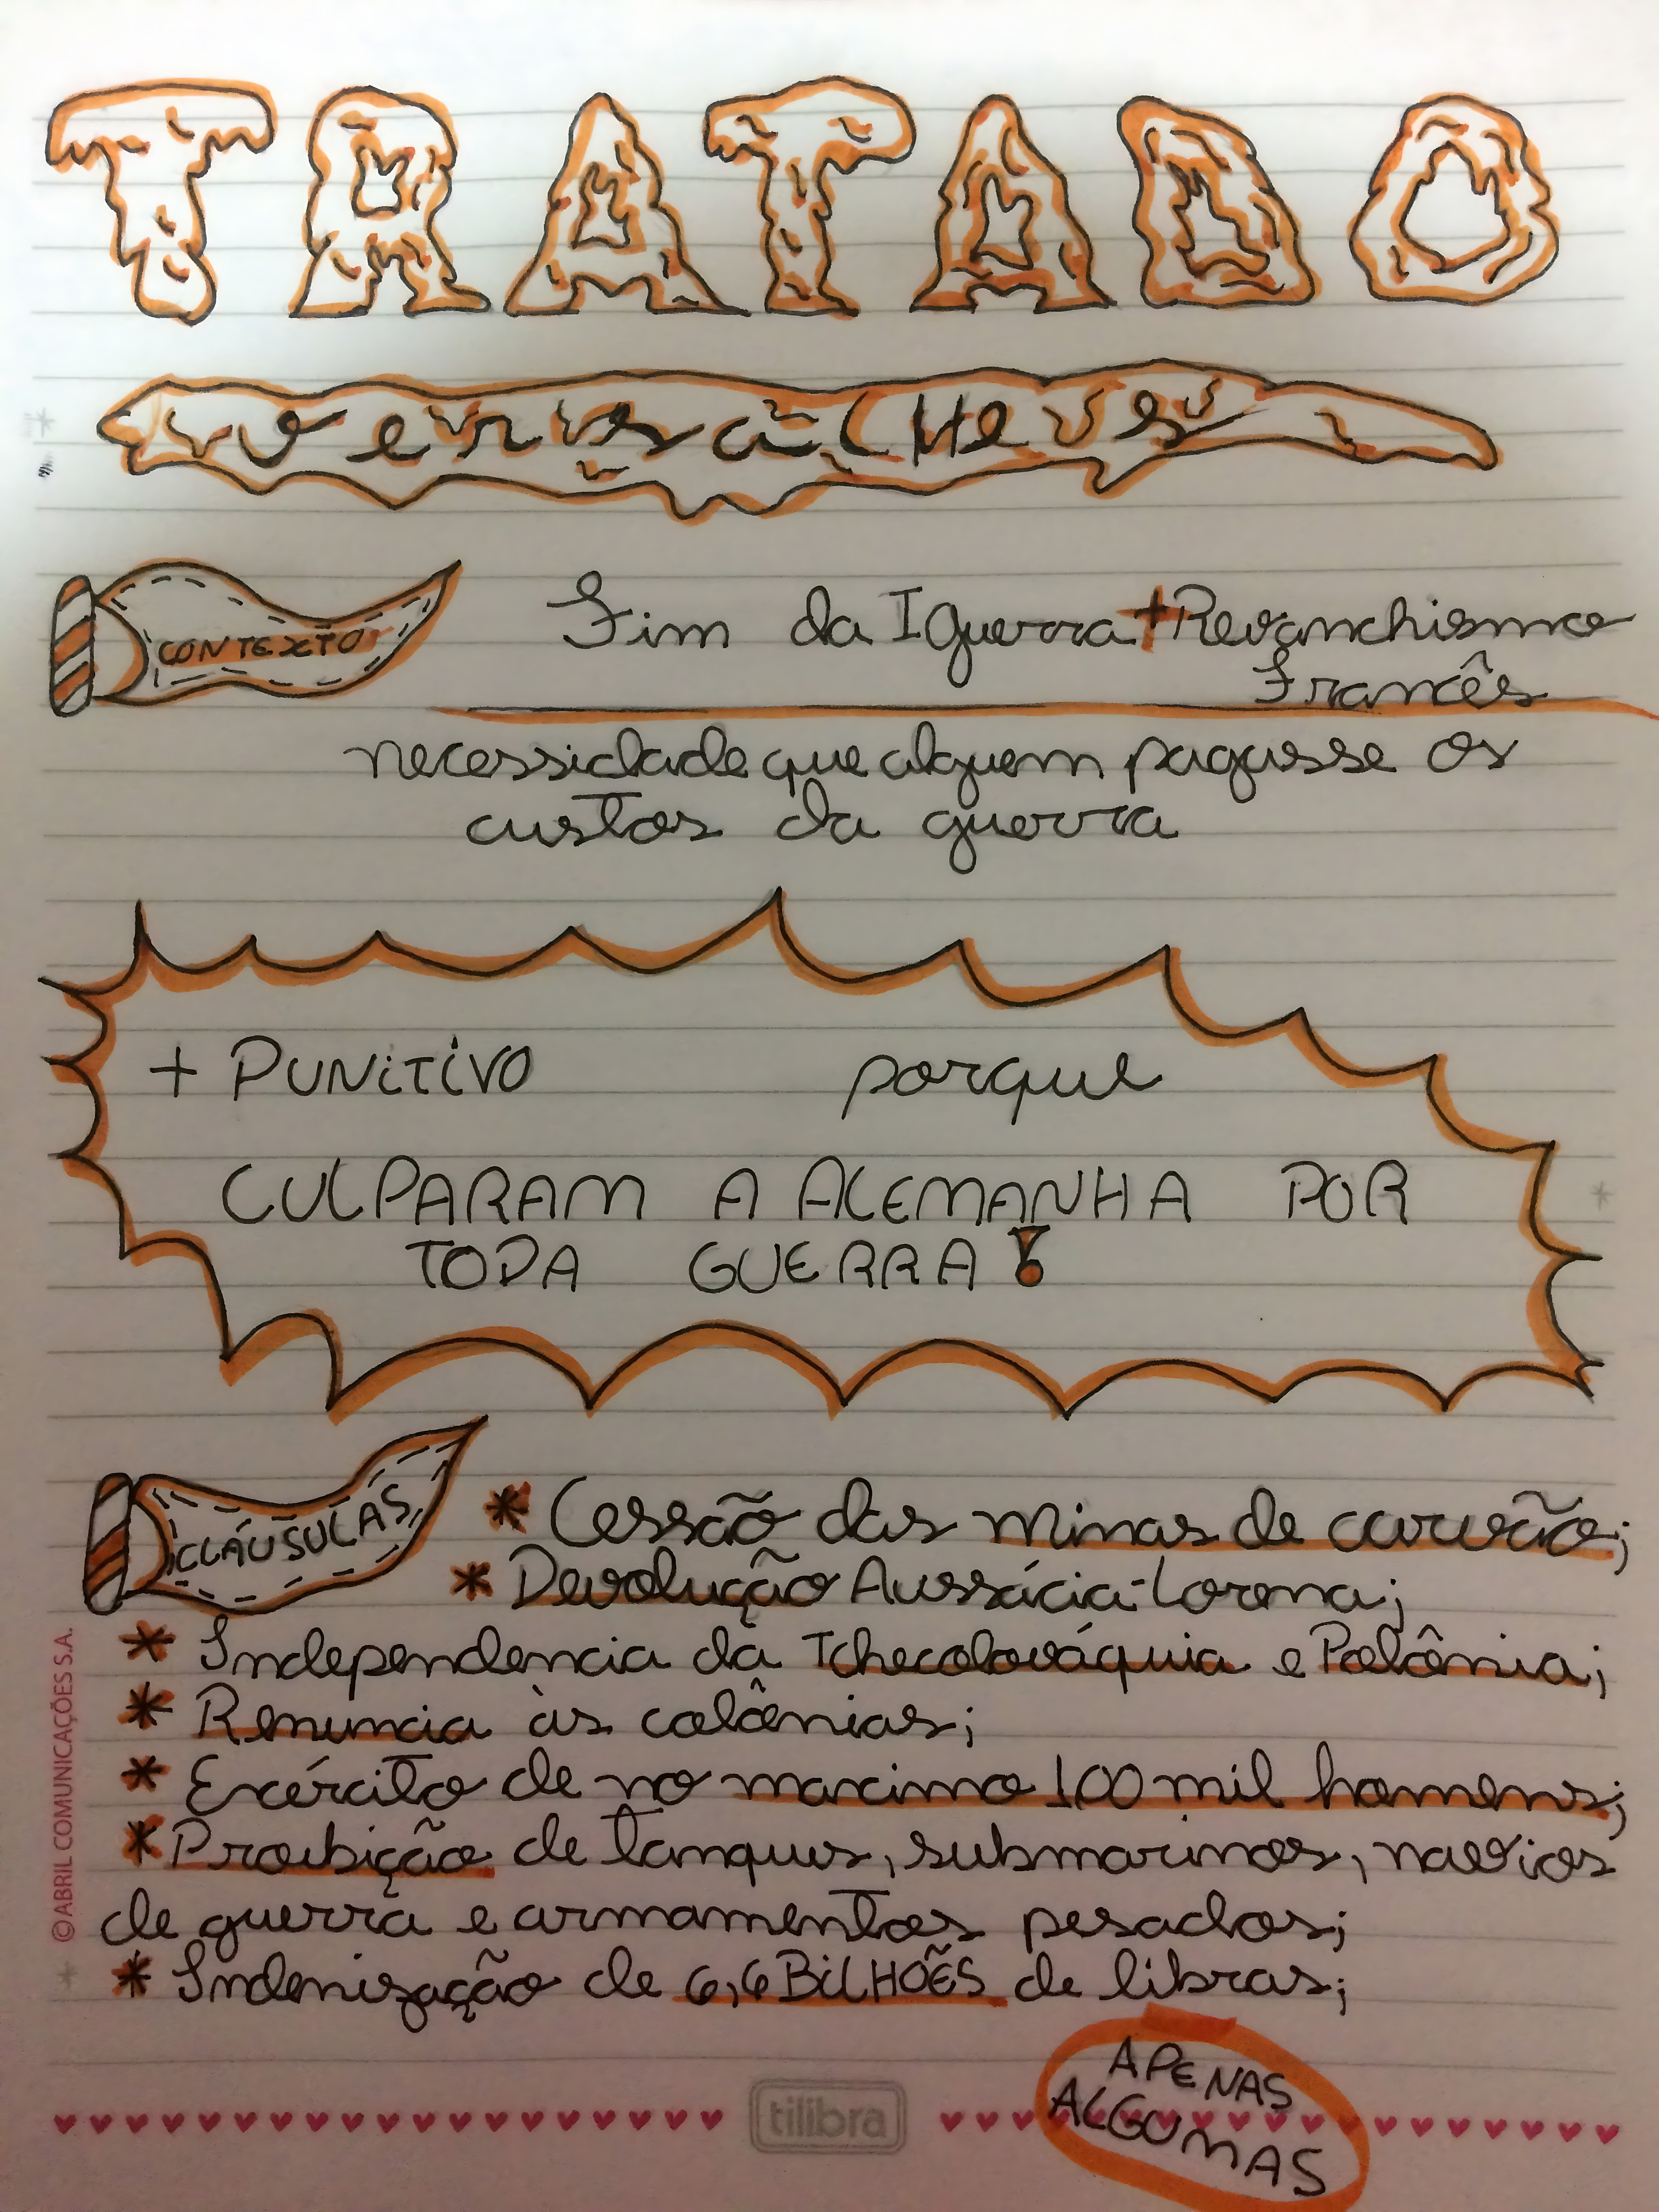 TRATADO
versalhes
CONTEXTO
Fim da I Guerra + Revanchismo
Francês
necessidade que alguem pagasse os
custos da guerra
+ PUNITIVO porque
CULPARAM A ALEMANHA POR
TODA GUERRA!
CLÁUSULAS
* Cessão das minas de carvão;
* Devolução Aussácia-Lorena;
* Independencia da Tchecolováquia e Polônia;
* Renuncia às colônias;
* Exército de no maximo 100 mil homens;
* Proibição de tanques, submarinos, navios
de guerra e armamentos pesados;
* Indenização de 6,6 BILHÕES de libras;
APENAS
ALGUMAS
tilibra
©ABRIL COMUNICAÇÕES S.A.